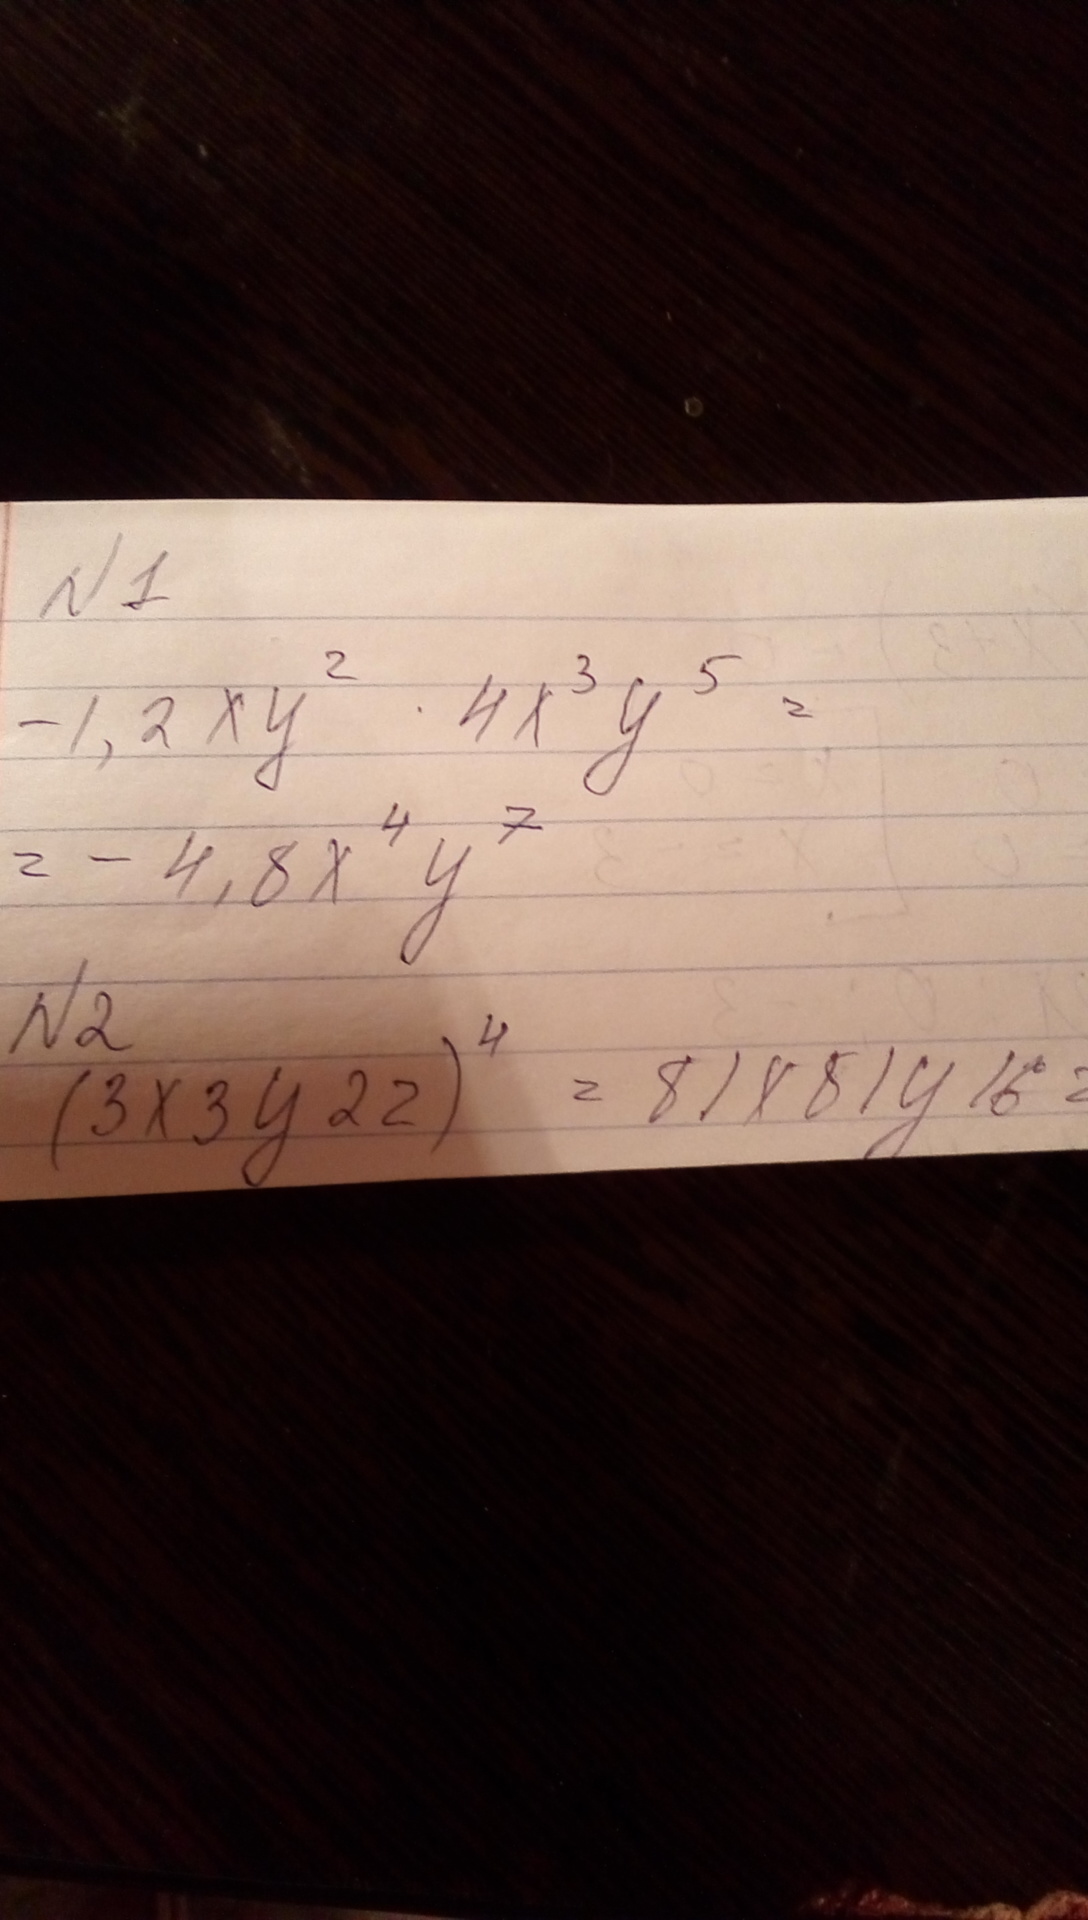 №1
-1,2xy² · 4x³y⁵ =
= -4,8x⁴y⁷
№2
(3x3y2z)⁴ = 81x81y16 =